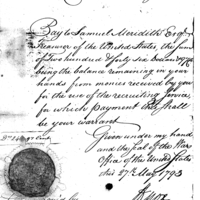 Pay to Samuel Meredith Esqr
Treasurer of the United States, the sum
of Two hundred & forty six dollars
being the balance remaining in your
hands from monies received by you
for the use of the recruiting service,
for which payment this shall
be your warrant.
Given under my hand
and the seal of the War
Office of the United States
this 27th May 1793
HKnox